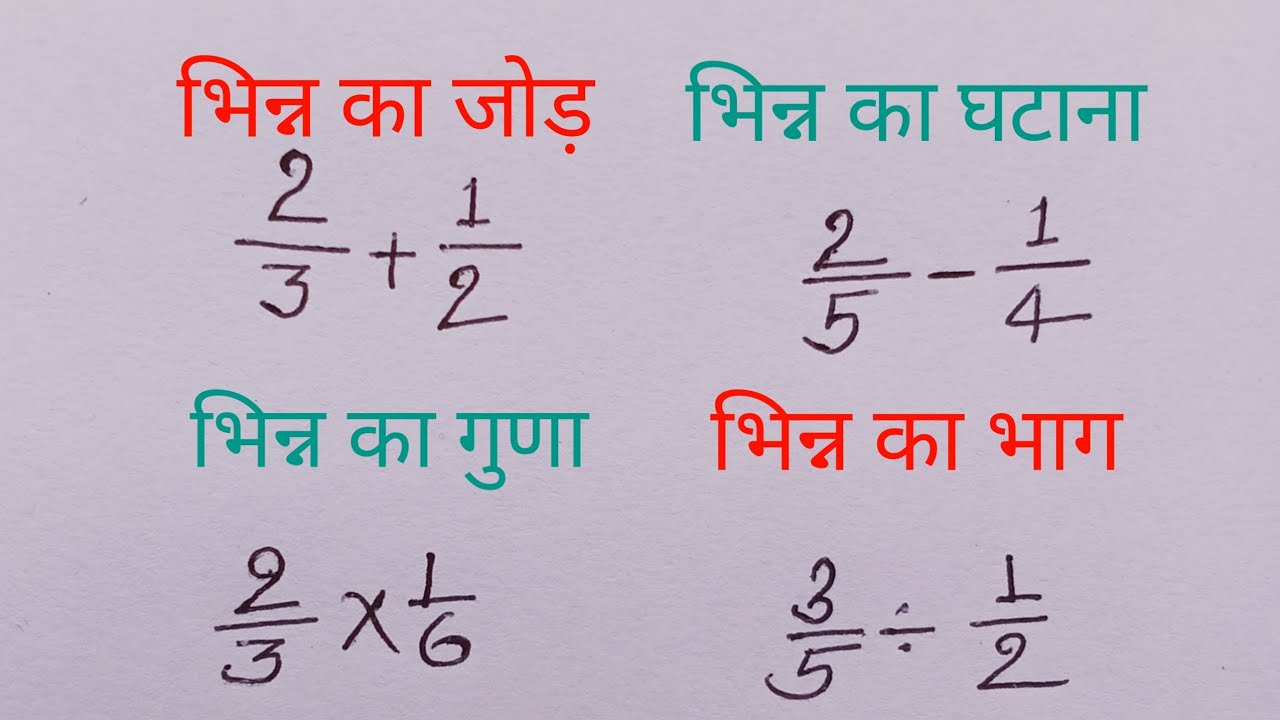 भिन्न का जोड़
2/3 + 1/2
भिन्न का घटाना
2/5 - 1/4
भिन्न का गुणा
2/3 × 1/6
भिन्न का भाग
3/5 ÷ 1/2